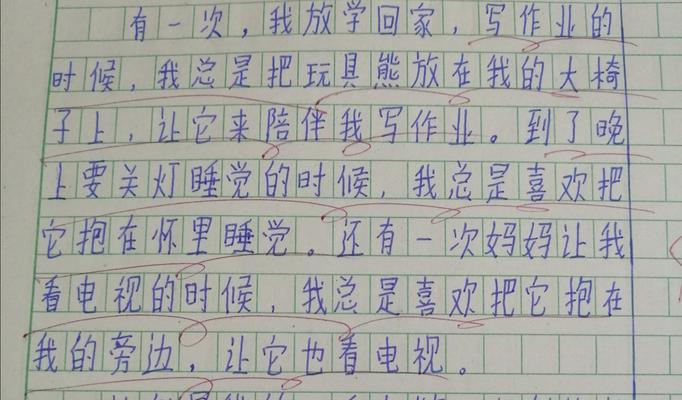 有一次，我放学回家，写作业的
时候，我总是把玩具熊放在我的大椅
子上，让它来陪伴我写作业。到了晚
上要关灯睡觉的时候，我总是喜欢把
它抱在怀里睡觉。还有一次妈妈让我
看电视的时候，我总是喜欢把它抱在
我的旁边，让它也看电视。